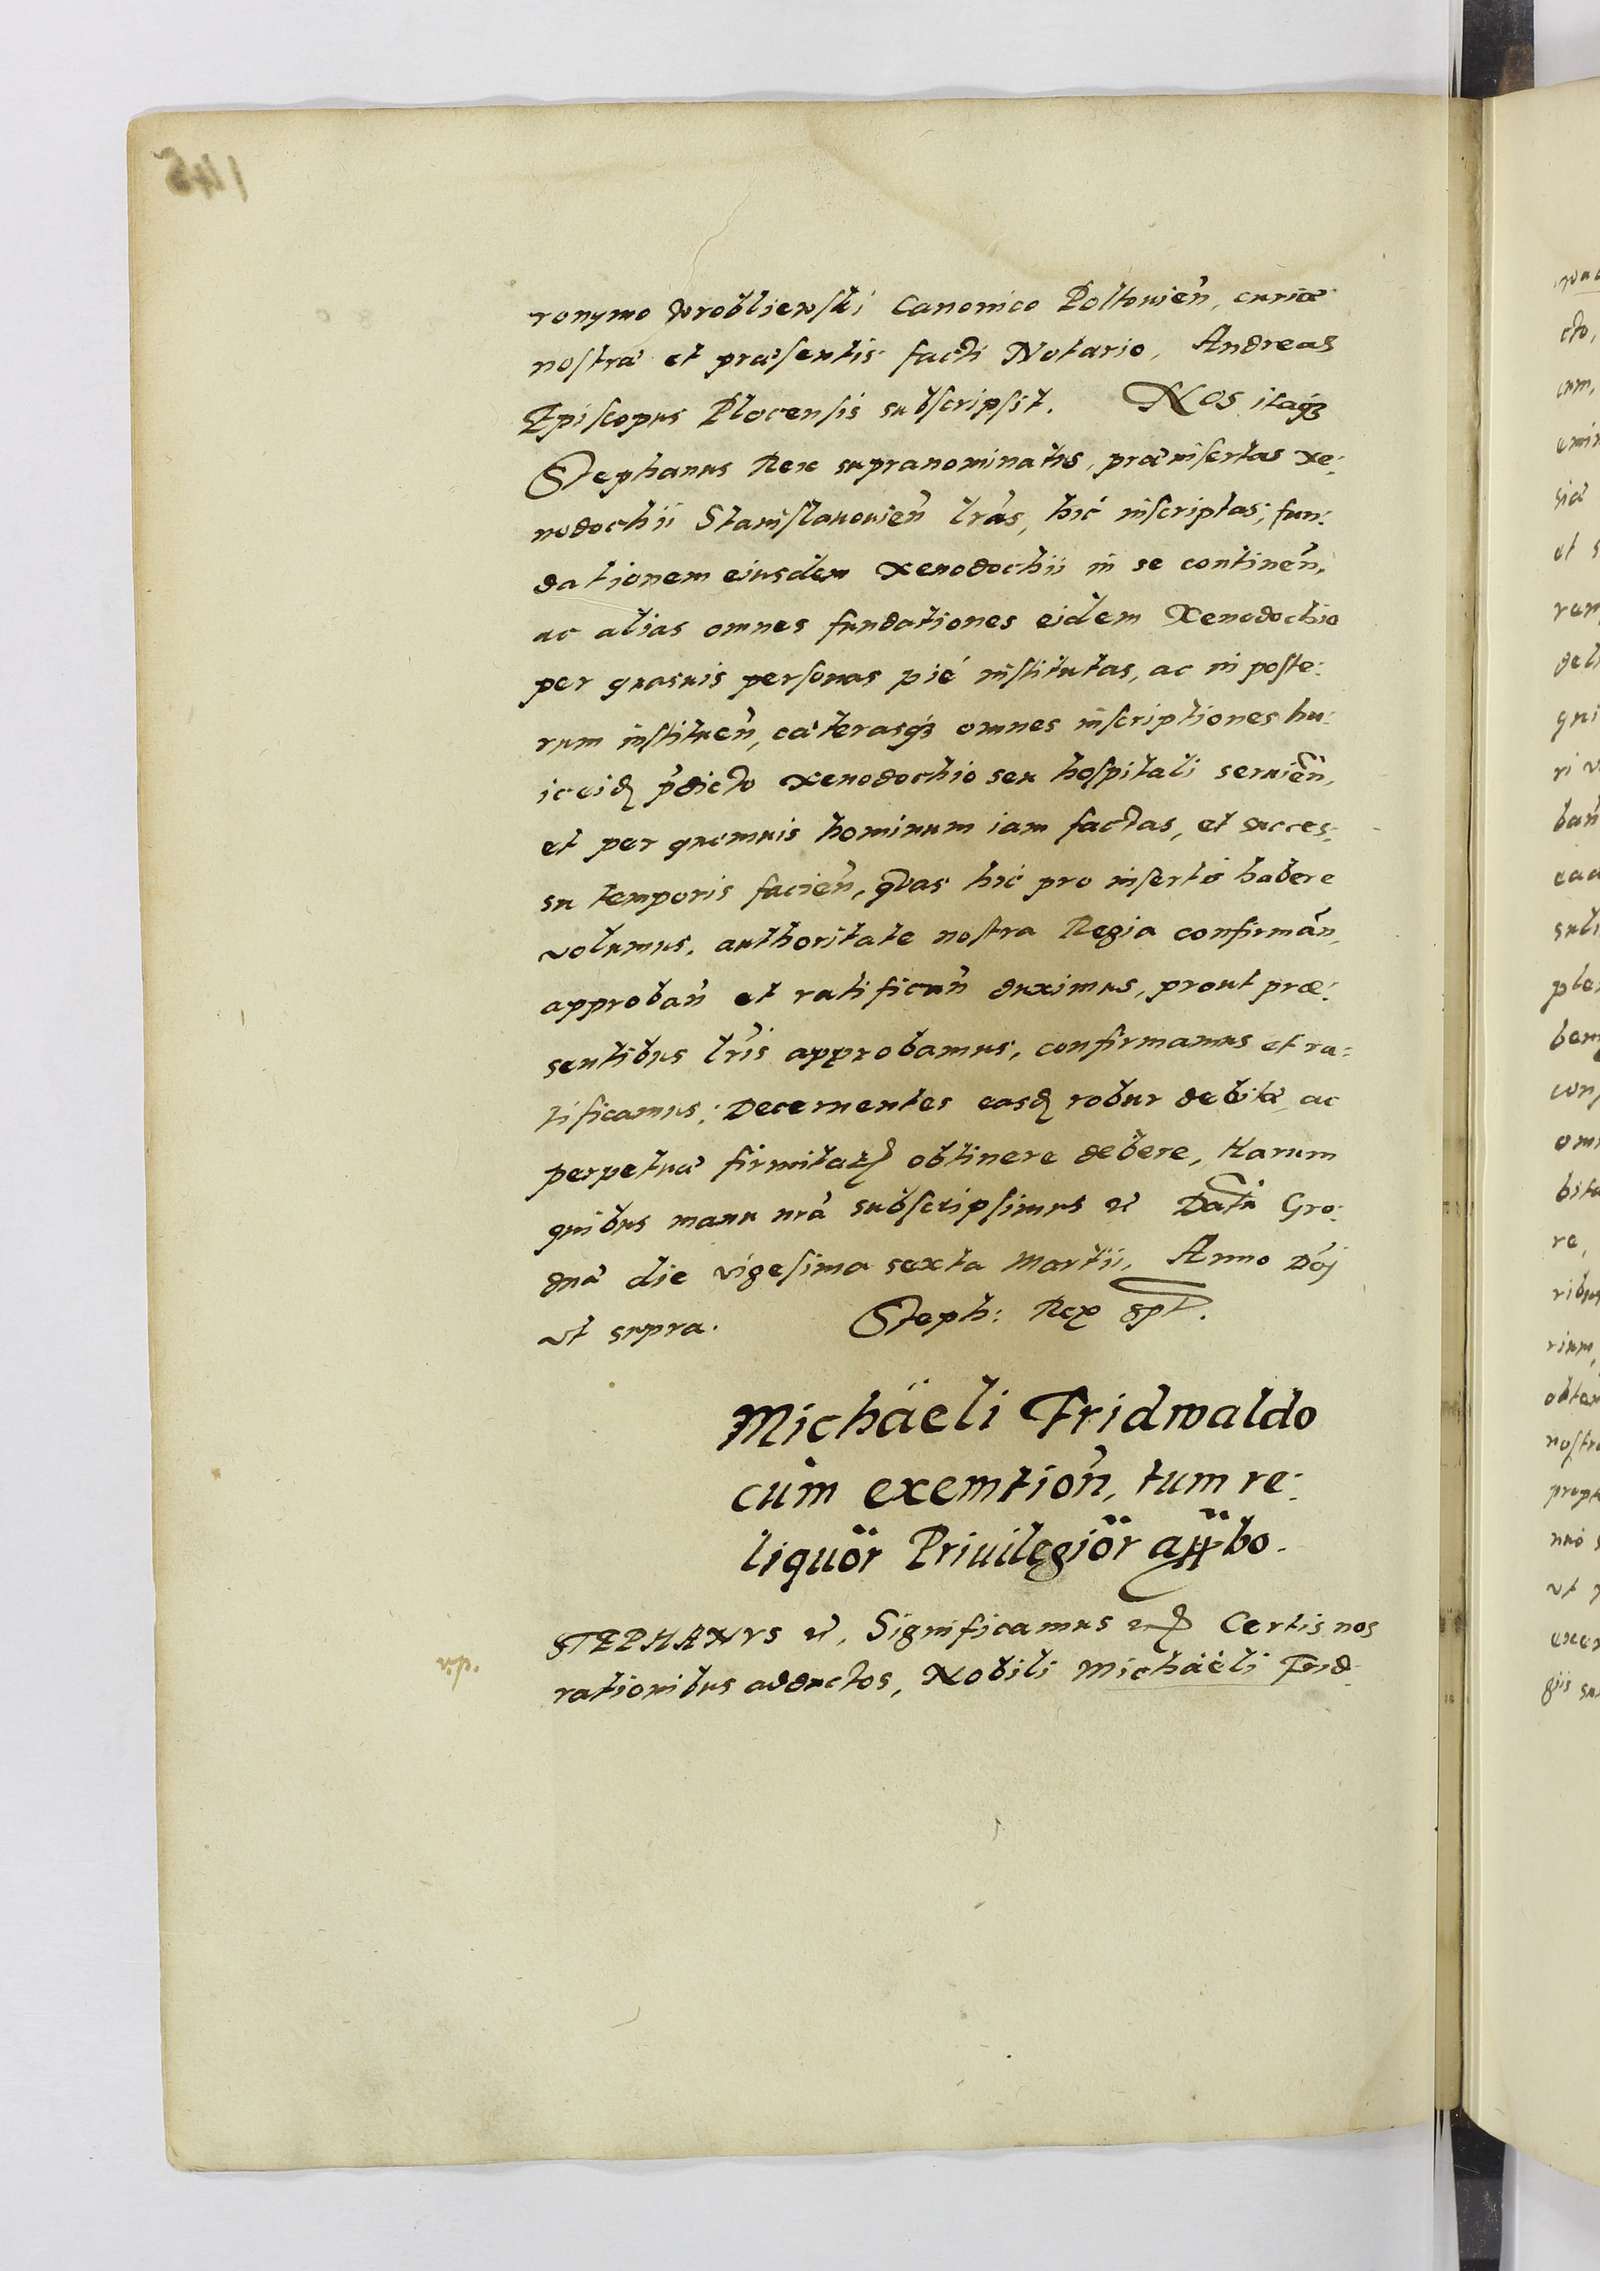 ronymo Wroblienski Canonico Poltouień, curiæ
nostræ et præsentis facti Notario, Andreas
Episcopus Plocensis subscripsit. Nos itaqз
Stephanus Rex supranominatus, præinsertas xe:
nodochii Stanislauouień lr̃as, hic inscriptas, fun:
dationem eiusdem xenodochii in se continen̄,
ac alias omnes fundationes eidem Xenodochio
per quasuis personas pié institutas, ac in poste:
rum instituen̄, cæterasqз omnes inscriptiones hu:
ic eid p̄dicto xenodochio seu hospitali seruien̄,
et per quemuis hominum iam factas, et succes:
su temporis facien̄, quas hic pro insertis habere
volumus, authoritate nostra Regia confirman̄,
approban̄ et ratifican̄ duximus, prout præ:
sentibus lr̃is approbamus, confirmamus et ra:
tificamus: Decernentes easd robur debitæ ac
perpetuæ firmitatis obtinere debere, Harum
quibus manu nr̃a subscripsimus Datū Gro:
dnæ die vigesima sexta Martii, Anno Dńj
vt supra. Steph: Rex spt.
Michäeli Fridwaldo
cum exemtion̄, tum re:
liquor̄ Priuilegior̄ appbo.
STEPHANVS Significamus Certis nos
rationibus adductos, Nobili Michäeli Frid-
vip.
145